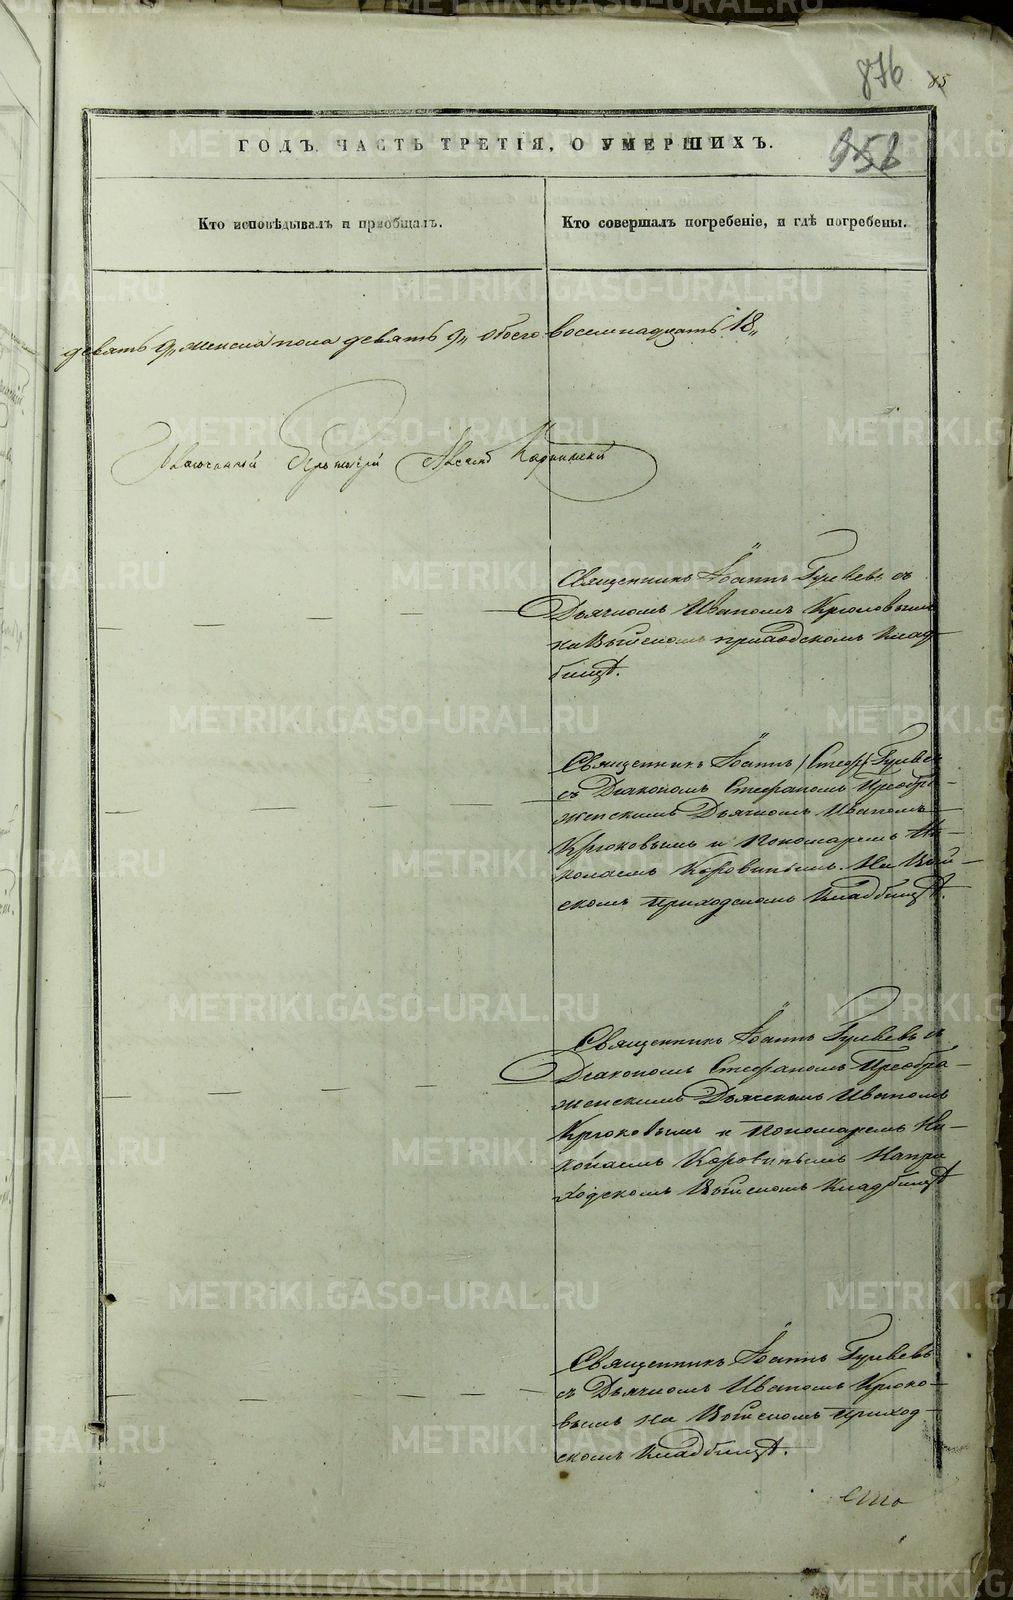 876 85
958
ГОДЪ. ЧАСТЬ ТРЕТІЯ, О УМЕРШИХЪ.
Кто исповѣдывалъ и пріобщалъ.
Кто совершалъ погребеніе, и гдѣ погребены.
девять 9,, женска пола девять 9,, обоего восемнадцать 18,,
Священникъ Іоаннъ Гуляевъ съ
Дьячкомъ Иваномъ Крюковымъ
на приходскомъ клад-
бищѣ.
Священникъ Іоаннъ Гуляевъ
съ Діакономъ Стефаномъ Преобра-
женскимъ Дьячкомъ Иваномъ
Крюковымъ и Пономаремъ Ни-
колаемъ Коровинымъ. На
скомъ приходскомъ кладбищѣ.
Священникъ Іоаннъ Гуляевъ съ
Діакономъ Стефаномъ Преобра-
женскимъ Дьячкомъ Иваномъ
Крюковымъ и Пономаремъ Ни-
колаемъ Коровинымъ На при
ходскомъ кладбищѣ
Священникъ Іоаннъ Гуляевъ
съ Дьячкомъ Иваномъ Крюко-
вымъ на приход-
скомъ кладбищѣ.
METRIKI.GASO-URAL.RU